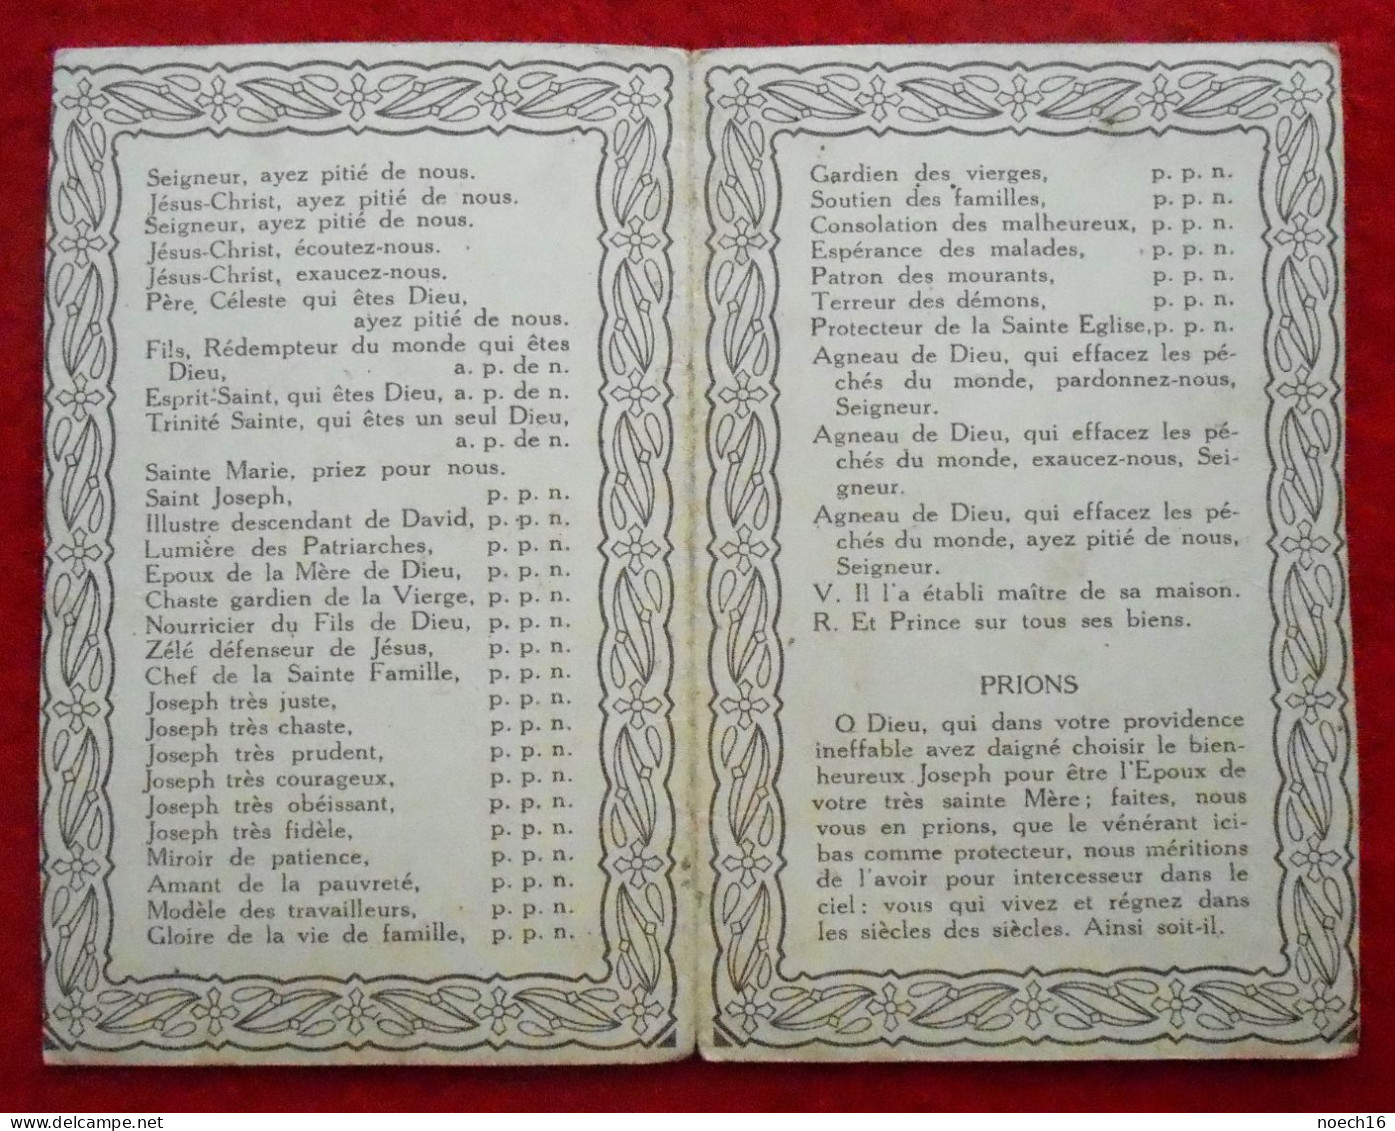 Seigneur, ayez pitié de nous.
Jésus-Christ, ayez pitié de nous.
Seigneur, ayez pitié de nous.
Jésus-Christ, écoutez-nous.
Jésus-Christ, exaucez-nous.
Père Céleste qui êtes Dieu,
ayez pitié de nous.
Fils, Rédempteur du monde qui êtes
Dieu, a. p. de n.
Esprit-Saint, qui êtes Dieu, a. p. de n.
Trinité Sainte, qui êtes un seul Dieu,
a. p. de n.
Sainte Marie, priez pour nous.
Saint Joseph, p. p. n.
Illustre descendant de David, p. p. n.
Lumière des Patriarches, p. p. n.
Epoux de la Mère de Dieu, p. p. n.
Chaste gardien de la Vierge, p. p. n.
Nourricier du Fils de Dieu, p. p. n.
Zélé défenseur de Jésus, p. p. n.
Chef de la Sainte Famille, p. p. n.
Joseph très juste, p. p. n.
Joseph très chaste, p. p. n.
Joseph très prudent, p. p. n.
Joseph très courageux, p. p. n.
Joseph très obéissant, p. p. n.
Joseph très fidèle, p. p. n.
Miroir de patience, p. p. n.
Amant de la pauvreté, p. p. n.
Modèle des travailleurs, p. p. n.
Gloire de la vie de famille, p. p. n.
Gardien des vierges, p. p. n.
Soutien des familles, p. p. n.
Consolation des malheureux, p. p. n.
Espérance des malades, p. p. n.
Patron des mourants, p. p. n.
Terreur des démons, p. p. n.
Protecteur de la Sainte Eglise, p. p. n.
Agneau de Dieu, qui effacez les pé-
chés du monde, pardonnez-nous,
Seigneur.
Agneau de Dieu, qui effacez les pé-
chés du monde, exaucez-nous, Sei-
gneur.
Agneau de Dieu, qui effacez les pé-
chés du monde, ayez pitié de nous,
Seigneur.
V. Il l'a établi maître de sa maison.
R. Et Prince sur tous ses biens.
PRIONS
O Dieu, qui dans votre providence
ineffable avez daigné choisir le bien-
heureux Joseph pour être l'Epoux de
votre très sainte Mère ; faites, nous
vous en prions, que le vénérant ici-
bas comme protecteur, nous méritions
de l'avoir pour intercesseur dans le
ciel : vous qui vivez et régnez dans
les siècles des siècles. Ainsi soit-il.
noech16